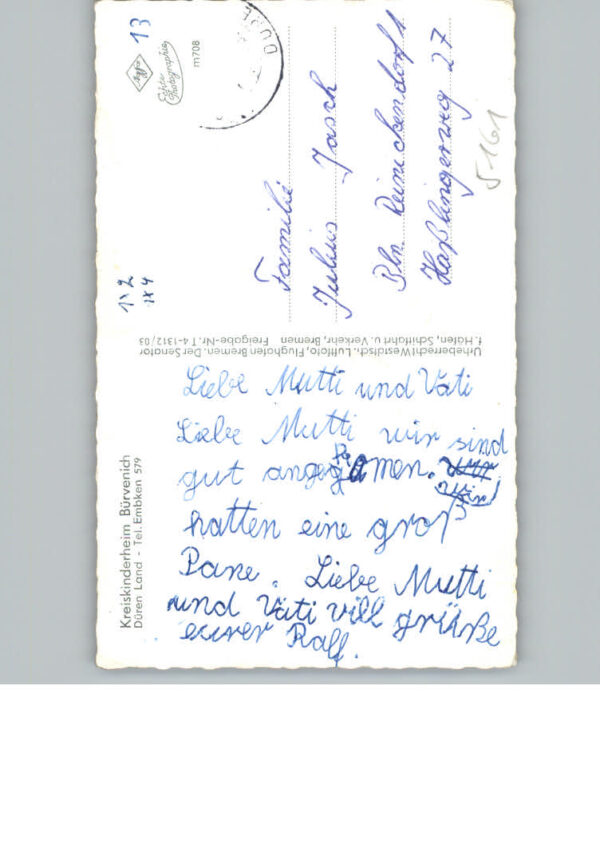 Kreiskinderheim Bürvenich
Düren Land - Tel. Embken 579
Liebe Mutti und Vati
Liebe Mutti wir sind
gut angekamen.
wir
hatten eine groß
Pane. Liebe Mutti
und Väti vill grüße
eurer Ralf.
Urheberrecht Westdtsch. Luftfoto, Flughafen Bremen. Der Senator
f. Häfen, Schiffahrt u. Verkehr, Bremen Freigabe-Nr. T-4-1312/03
Agfa
Echte
Photographie
m708
13
Familie
Julius Jasch
Bln Reinickendorf 1
Haßlingerweg 27
5161